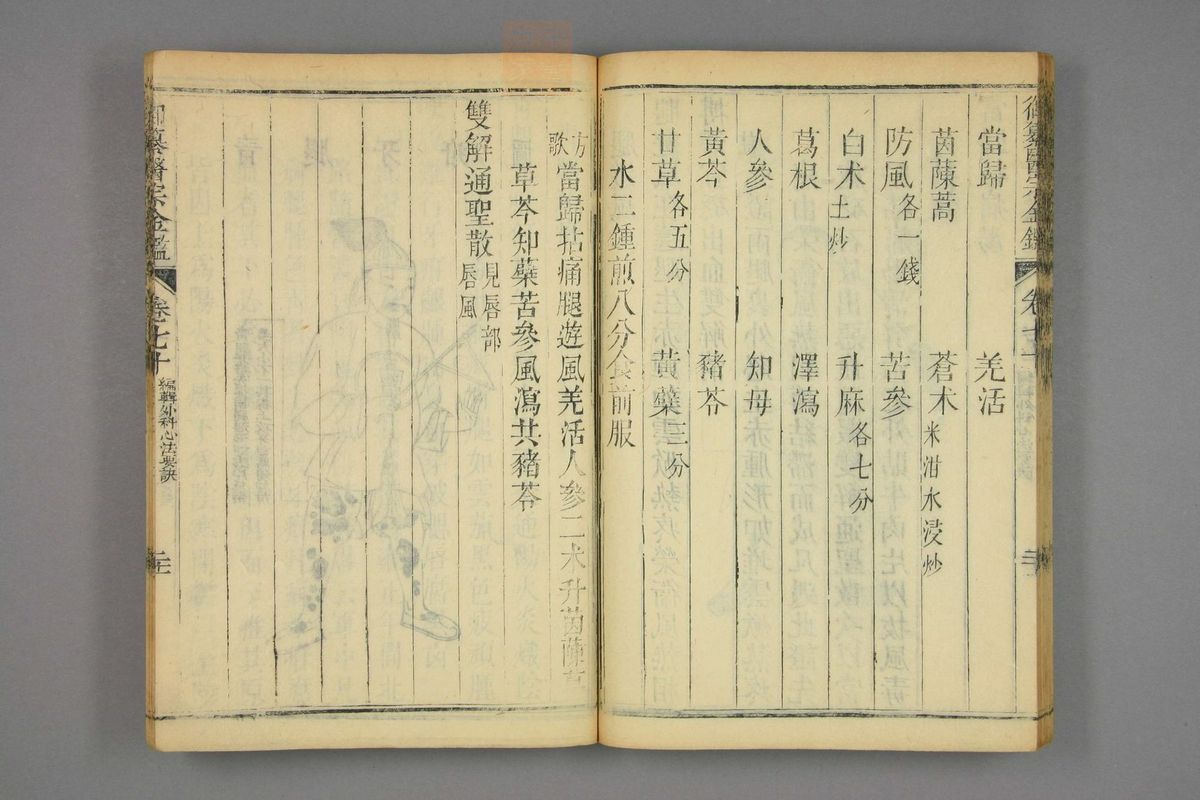 當歸 羌活
茵蔯蒿 蒼朮米泔水浸炒
防風各一錢 苦參
白朮土炒 升麻各七分
葛根 澤瀉
人參 知母
黃芩 豬苓
甘草各五分 黃蘗三分
水二鍾煎八分食前服
方歌 當歸拈痛腿遊風羌活人參二朮升茵蔯葛
草芩知蘗苦參風瀉共豬苓
雙解通聖散見唇部唇風
御纂醫宗金鑑 卷七十 編輯外科心法要訣